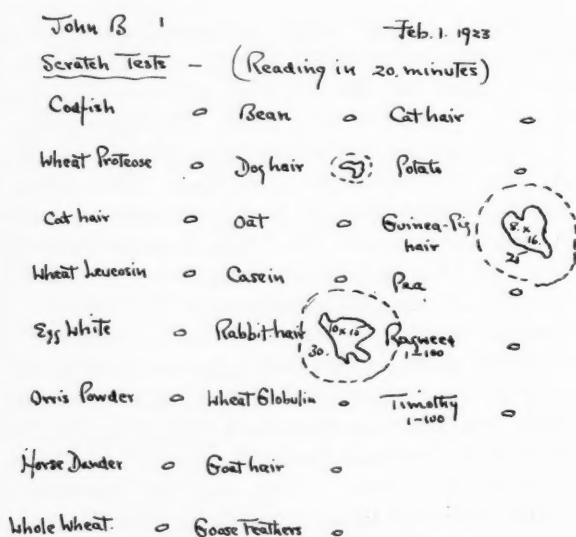 John B Feb. 1. 1923
Scratch Tests - (Reading in 20. minutes)
Codfish o Bean o Cat hair o
Wheat Proteose o Dog hair Potato o
Cat hair o Oat o Guinea-Pig hair 8. x 16. 20
Wheat Leucosin o Casein o Pea o
Egg White o Rabbit hair 10 x 10 30. Ragweed 1-100 o
Orris Powder o Wheat Globulin o Timothy 1-100 o
Horse Dander o Goat hair o
Whole Wheat. o Goose Feathers o